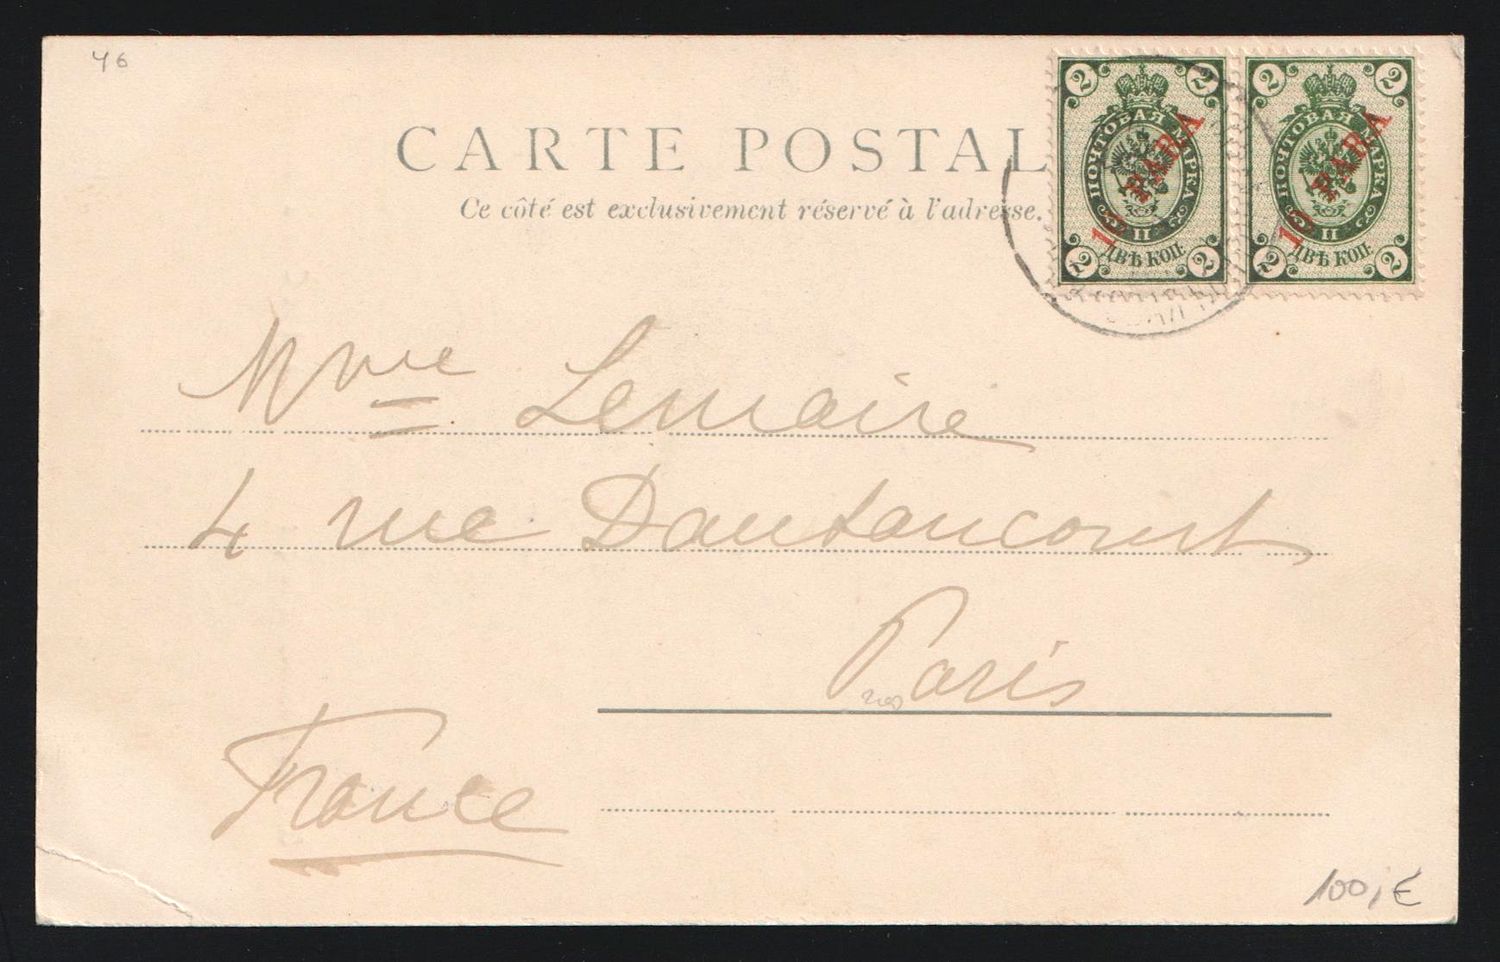 46
CARTE POSTAL
Ce côté est exclusivement réservé à l'adresse.
2 2
ПОЧТОВАЯ МАРКА
10 PARA
II
ДВѢ КОП.
2 2
2 2
ПОЧТОВАЯ МАРКА
10 PARA
II
ДВѢ КОП.
2 2
Mme Lemaire
4 rue Dautancourt
Paris
France
100,€